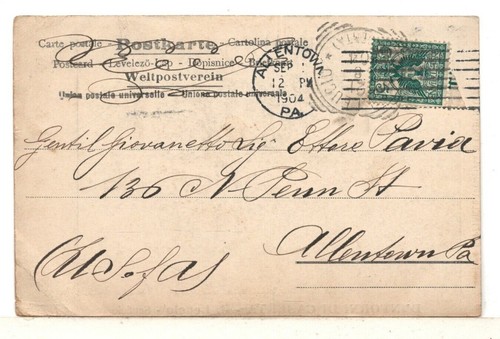 Carte postale - Postkarte - Cartolina postale
Postcard - Levelező-lap - Dopisnice -
Weltpostverein
Union postale universelle Unione postale universale
ALLENTOWN
SEP
12 PM
1904
PA.
Gentil Giovanetto Sig Ettore Pavia
136 N Penn St
Allentown Pa
U S of A S